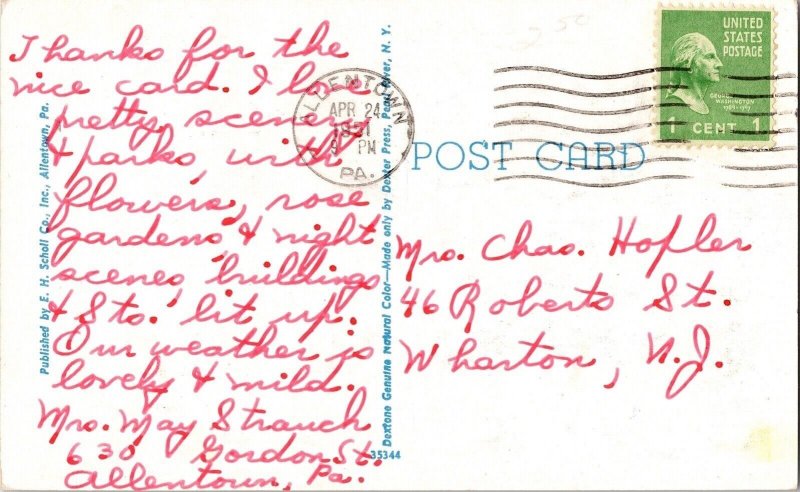 Thanks for the
nice card. I love
pretty scenery
& parks, with
flowers, rose
gardens & night
scenes, buildings
& Sts. lit up.
Our weather is
lovely & mild.
Mrs. May Strauch
630 Gordon St.
Allentown, Pa.
Published by E. H. Scholl Co., Inc., Allentown, Pa.
Dextone Genuine Natural Color—Made only by Dexter Press, Pearl River, N. Y.
35344
ALLENTOWN
APR 24
1951
PM
PA.
POST CARD
UNITED
STATES
POSTAGE
GEORGE
WASHINGTON
1 CENT 1
Mrs. Chas. Hofler
46 Roberts St.
Wharton, N.J.